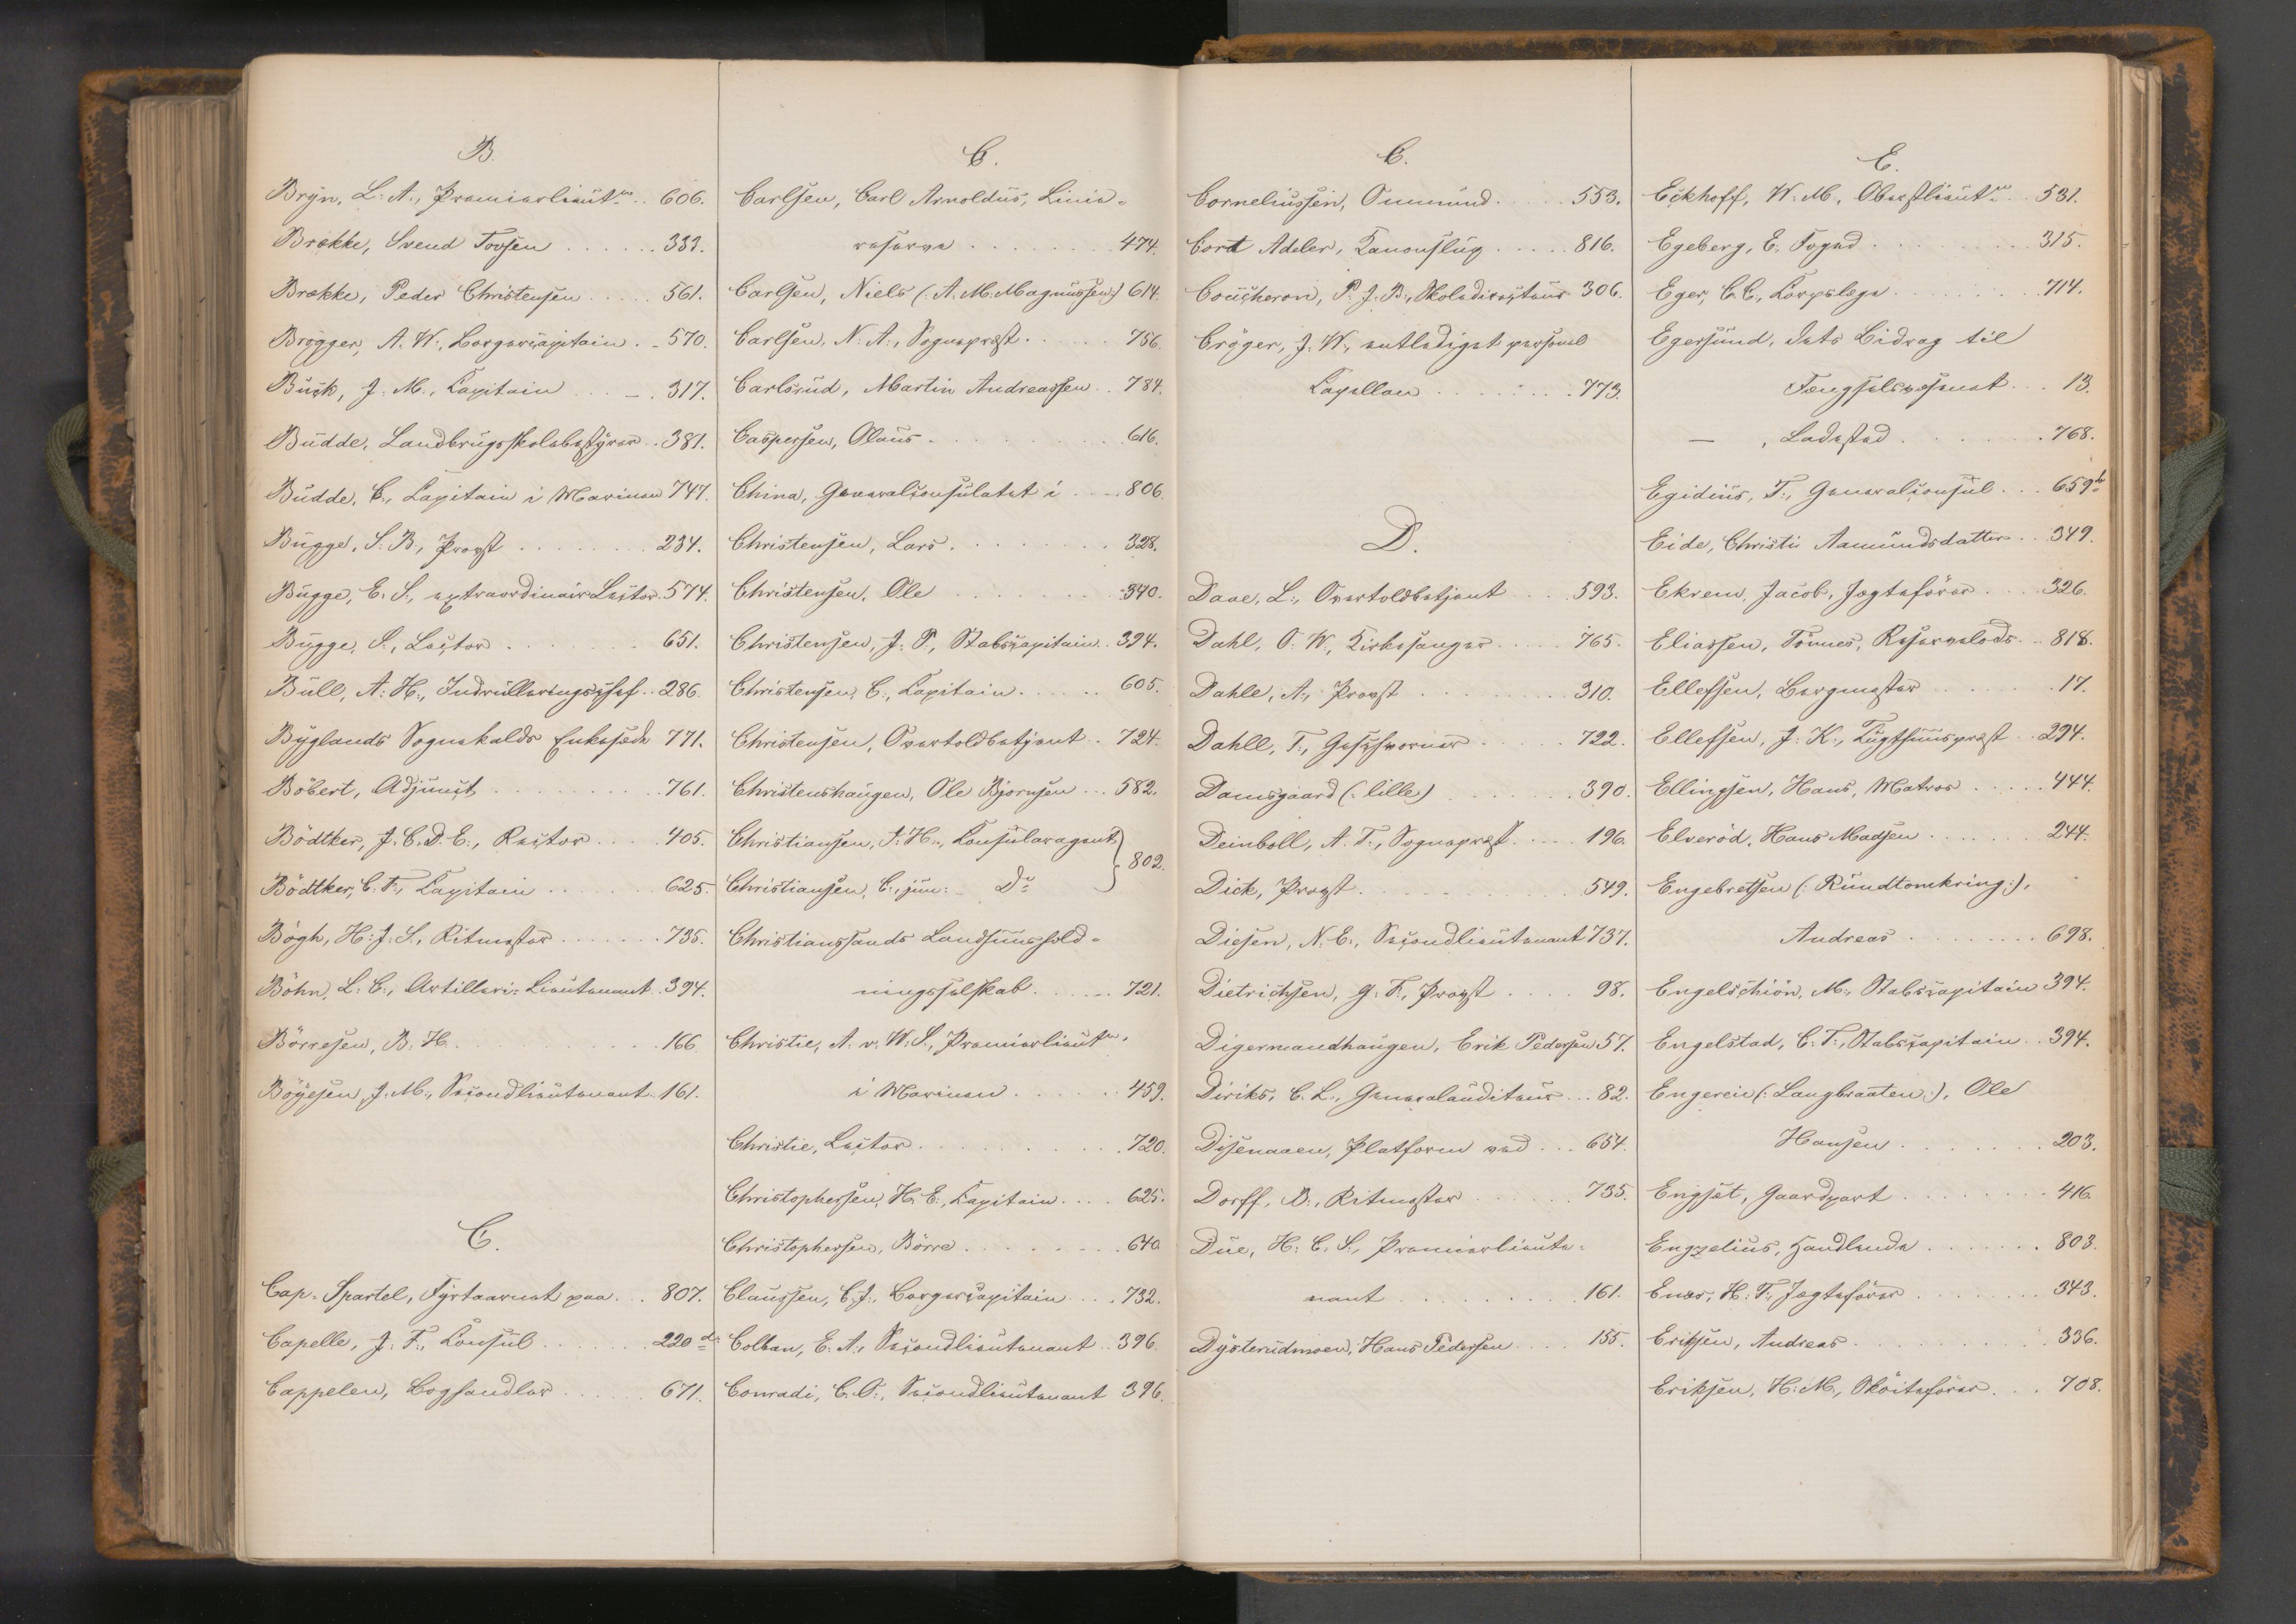 B.
Bryn, L. A., Premierlieut.n .. 606.
Brække, Svend Tovsen ...... 333.
Brække, Peder Christensen ..... 561.
Brøgger, A. W., Borgercapitain .. 570.
Buck, J. M., Kapitain ... 317.
Budde, Landbrugsskolebestyrer .. 381.
Budde, C., Kapitain i Marinen 747.
Bugge, S. B., Provst ....... 234.
Bugge, E. S., extraordinair Lector. 574.
Bugge, S., Lector ....... 651.
Bull, A. H., Indrulleringschef .. 286.
Byglands Sognekalds Enkesæde 771.
Böbert, Adjunct ........ 761.
Bödtker, J. C. D. E., Rector .... 405.
Bödtker, C. F., Kapitain ...... 625.
Bøgh, H. J. S., Ritmester ....... 735.
Böhn, L. C., Artilleri-Lieutenant .. 394.
Börresen, B. H. .......... 166.
Böyesen, J. M., Secondlieutenant. 161.
C.
Cap-Spartel, Fyrtaarnet paa ... 807.
Capelle, J. F., Konsul ...... 220 d.
Cappelen, Boghandler ..... 671.
C.
Carlsen, Carl Arnoldus, Linie-
reserve ...... 474.
Carlsen, Niels (: A. M. Magnussen:) 614.
Carlsen, N. A., Sogneprest ..... 756.
Carlsrud, Martin Andreassen .. 784.
Caspersen, Olaus ......... 616.
China, Generalconsulatet i .... 806.
Christensen, Lars ........ 328.
Christensen, Ole ........ 340.
Christensen, J. P., Stabscapitain .. 394.
Christensen, C., Kapitain ..... 605.
Christensen, Overtoldbetjent .. 724.
Christenshaugen, Ole Bjornsen ... 582.
Christiansen, J. H., Konsularagent } 802.
Christiansen, C., jun: – Do
Christianssands Landhuushold-
ningsselskab ...... 721.
Christie, A. v. W. S., Premierlieutn,
i Marinen ...... 459.
Christie, Lector .......... 720.
Christophersen, H. E., Kapitain .... 625.
Christophersen, Börre ........ 640
Claussen, C. J., Borgercapitain .... 732.
Colban, E. A., Secondlieutenant .. 396.
Conradi, C. O., Secondlieutenant 396.
C.
Corneliussen, Ommund ..... 553.
Cort Adeler, Kanonslup ..... 816.
Coucheron, P. J. B., Skoledirecteur 306.
Cröger, J. W., entlediget personel
Kapellan ....... 773.
D.
Daae, L., Overtoldbetjent ... 593.
Dahl, O. W., Kirkesanger ..... 765.
Dahle, A., Provst ....... 310.
Dahll, T., Geschworner ..... 722.
Damsgaard (: lille) ....... 390.
Deinboll, A. T., Sogneprest ..... 196.
Dick, Provst ......... 549.
Diesen, N. E., Secondlieutenant 737.
Dietrichsen, G. F., Provst .... 98.
Digermandhaugen, Erik Pedersen 57.
Diriks, C. L., Generalauditeur ... 82.
Disenaaen, Platform ved ... 654.
Dorff, B., Ritmester ..... 735.
Due, H. C. S., Premierlieute-
nant ....... 161.
Dysterudmoen, Hans Pedersen .... 155.
E.
Eckhoff, W. M., Oberstlieutn .. 531.
Egeberg, E. Foged ........ 315.
Eger, C. C., Korpslæge ........ 714.
Egersund, dets Bidrag til
Fængselsvæsenet ... 13.
— , Ladested ....... 768.
Egidius, T., Generalconsul ... 659 b.
Eide, Christi Aamundsdatter .. 349.
Ekrem, Jacob, Jagtefører .... 326.
Eliassen, Tönnes, Reservelods .. 818.
Ellefsen, Bergmester ....... 17.
Ellefsen, J. K., Tugthuusprest .. 294.
Ellingsen, Hans, Matros ..... 444.
Elveröd, Hans Madsen ....... 244.
Engebretsen (: Rundtomkring:),
Andreas ........ 698.
Engelschiön, M., Stabscapitain 394.
Engelstad, C. F., Stabscapitain .. 394.
Engereie (: Langbraaten:), Ole
Hansen ....... 203.
Engset, Gaardpart ........ 416.
Engzelius, Handlende ....... 803.
Enær, H. T., Jagtefører ....... 343.
Eriksen, Andreas .......... 336.
Eriksen, H. M., Sköitefører ... 708.